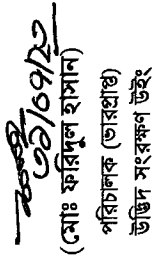 ৩১/০৭/২৩
(মোঃ ফরিদুল হাসান)
পরিচালক (ভারপ্রাপ্ত)
উদ্ভিদ সংরক্ষণ উইং